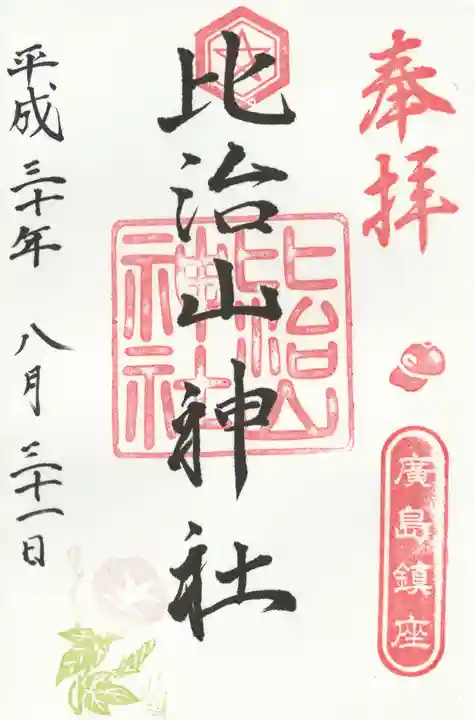 奉拝
廣島鎮座
比治山神社
比治山
神社
平成三十年 八月三十一日